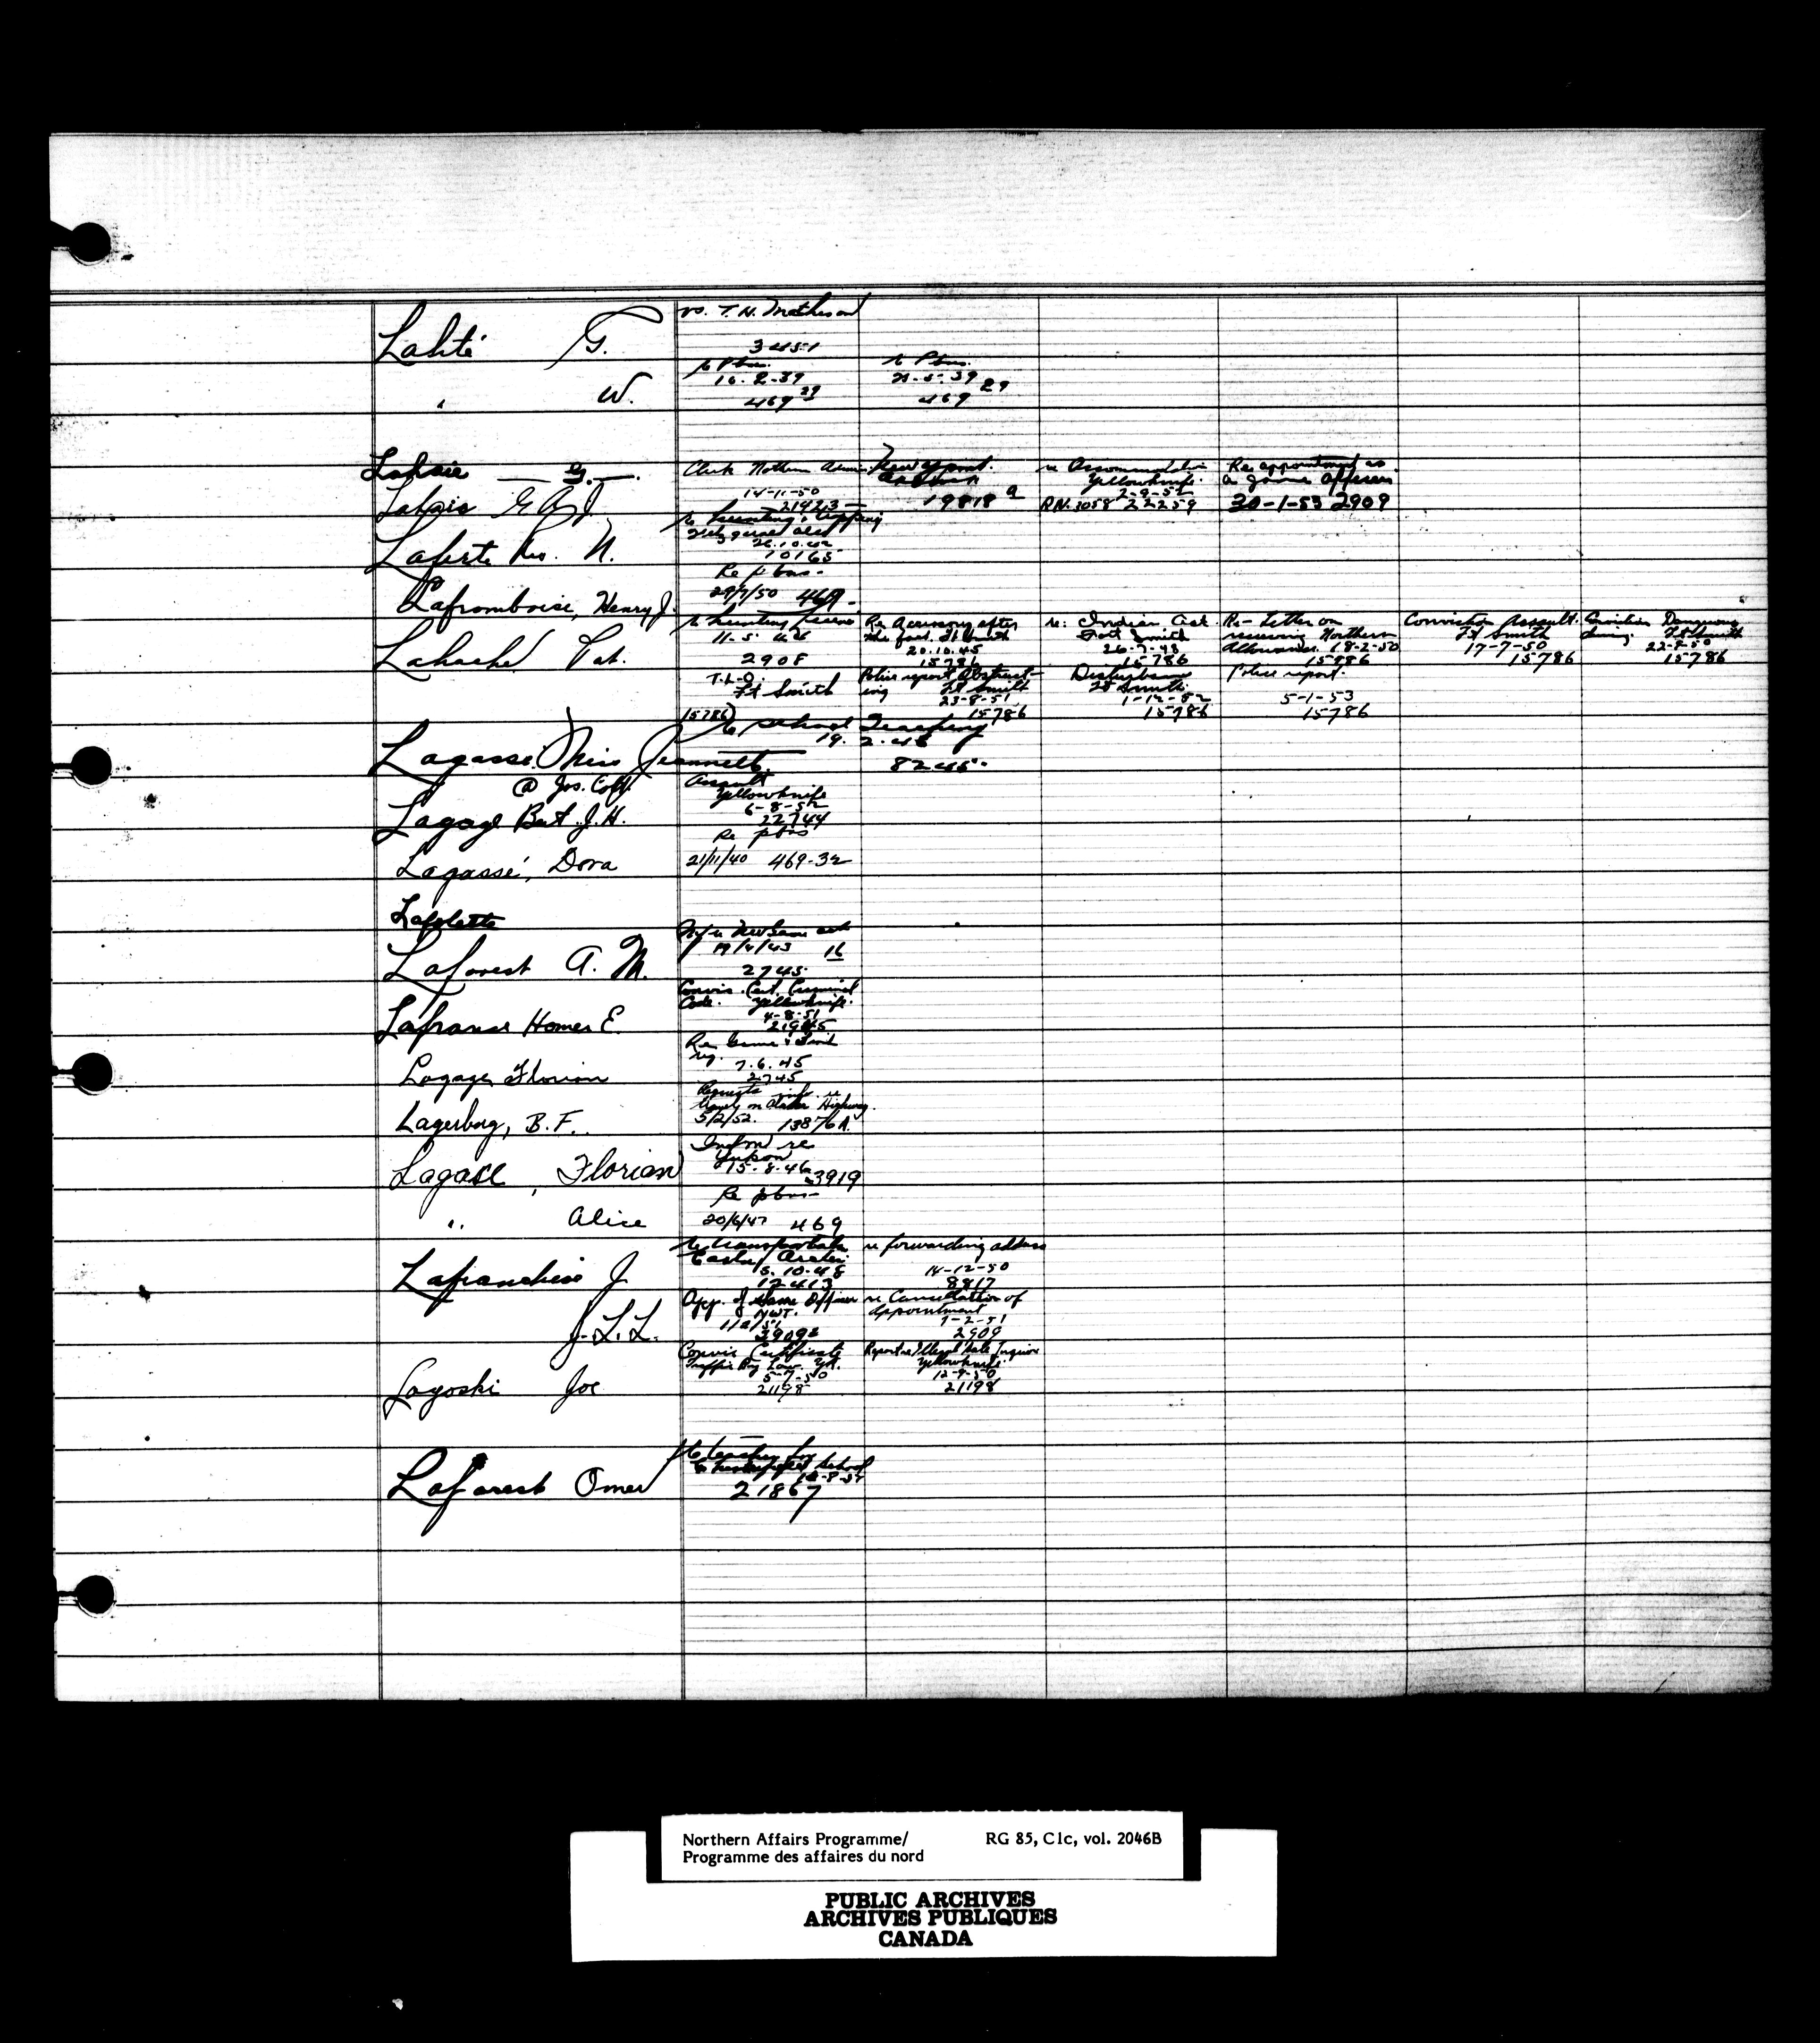 vs. T. N. Matheson
Lahti G.
3451
re Pbns.
16-2-39
469 29
re Pbns.
21-5-39
469 29
" W.
Clerk Northern Admin.
14-11-50
21423
New appoint.
19818 a
re Accommodation
Yellowknife
2-9-52
RN. 1058 22259
Re appointment as
a game officer
30-1-53 2909
re hunting & trapping
26.10.42
10165
Laferte Rev. N.
Re pbns-
29/9/50 469-
Laframboise, Henry J.
re hunting license
11-5-42
2908
Re Accessory after
the fact. Ft Smith
20.10.45
15786
re: Indian Act
Fort Smith
26-7-48
15786
Re- Letter on
receiving Northern
Allowances 18-2-50
15786
Conviction Assault.
Ft Smith
17-7-50
15786
Conviction Dangerous
driving. Ft Smith
22-9-50
15786
Lahache Pat.
T.L.O.
Ft Smith
15786
Police report Obstruct-
ing Ft Smith
23-8-51
15786
Disturbance
Ft Smith
1-12-52
15786
Police report.
5-1-53
15786
re school Teaching
19.2.45
Lagasse Miss Jeannette
8245.
@ Jos. Coff.
Assault
Yellowknife
6-8-52
22744
Bert J.H.
Re pbns
21/11/40 469-32
Lagassé, Dora
Lafolette
19/4/43 16
2745
Laforest A. M.
Convic. Cert. Criminal
Code. Yellowknife.
4-8-51
21945
Lafrance Homer E.
Re Game & Bird
reg.
7.6.45
2745
Lagage, Florian
Requests info. re
travel on Alaska Highway.
5/2/52. 13876A.
Lagerborg, B. F.
Infm re
Yukon
15-8-46
3919
Lagace, Florian
Re pbns-
20/6/47 469
" Alice
re transportation
Eastern Arctic
5.10.48
12413
re forwarding address
14-12-50
8817
Lafranchise J.
App. of Game Officer
NWT.
2909
re Cancellation of
Appointment
7-2-51
2909
J. L. L.
Convic Certificate
5-7-50
21198
Yellowknife
12-9-50
21198
Lagoski Joe
re teacher for
School
21867
Laforest Omer
Northern Affairs Programme/ RG 85, C1c, vol. 2046B
Programme des affaires du nord
PUBLIC ARCHIVES
ARCHIVES PUBLIQUES
CANADA